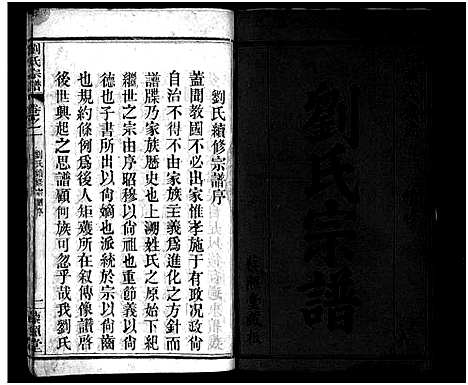 劉氏宗譜
劉氏續修宗譜序
蓋聞教國不必出家惟孝施于有政况政尙
自治不得不由家族主義爲進化之方針而
譜牒乃家族歷史也上溯姓氏之原始下承
繼世之宗由序昭穆以尙祖也重節義以尙
德也子書所出以尙嫡也派統於宗以尙齒
也規約條例爲後人矩矱所在叙傳像譜啓
後世興起之思譜顧何族可忽乎哉我劉氏
劉氏宗譜
卷之二
劉氏續修宗譜序